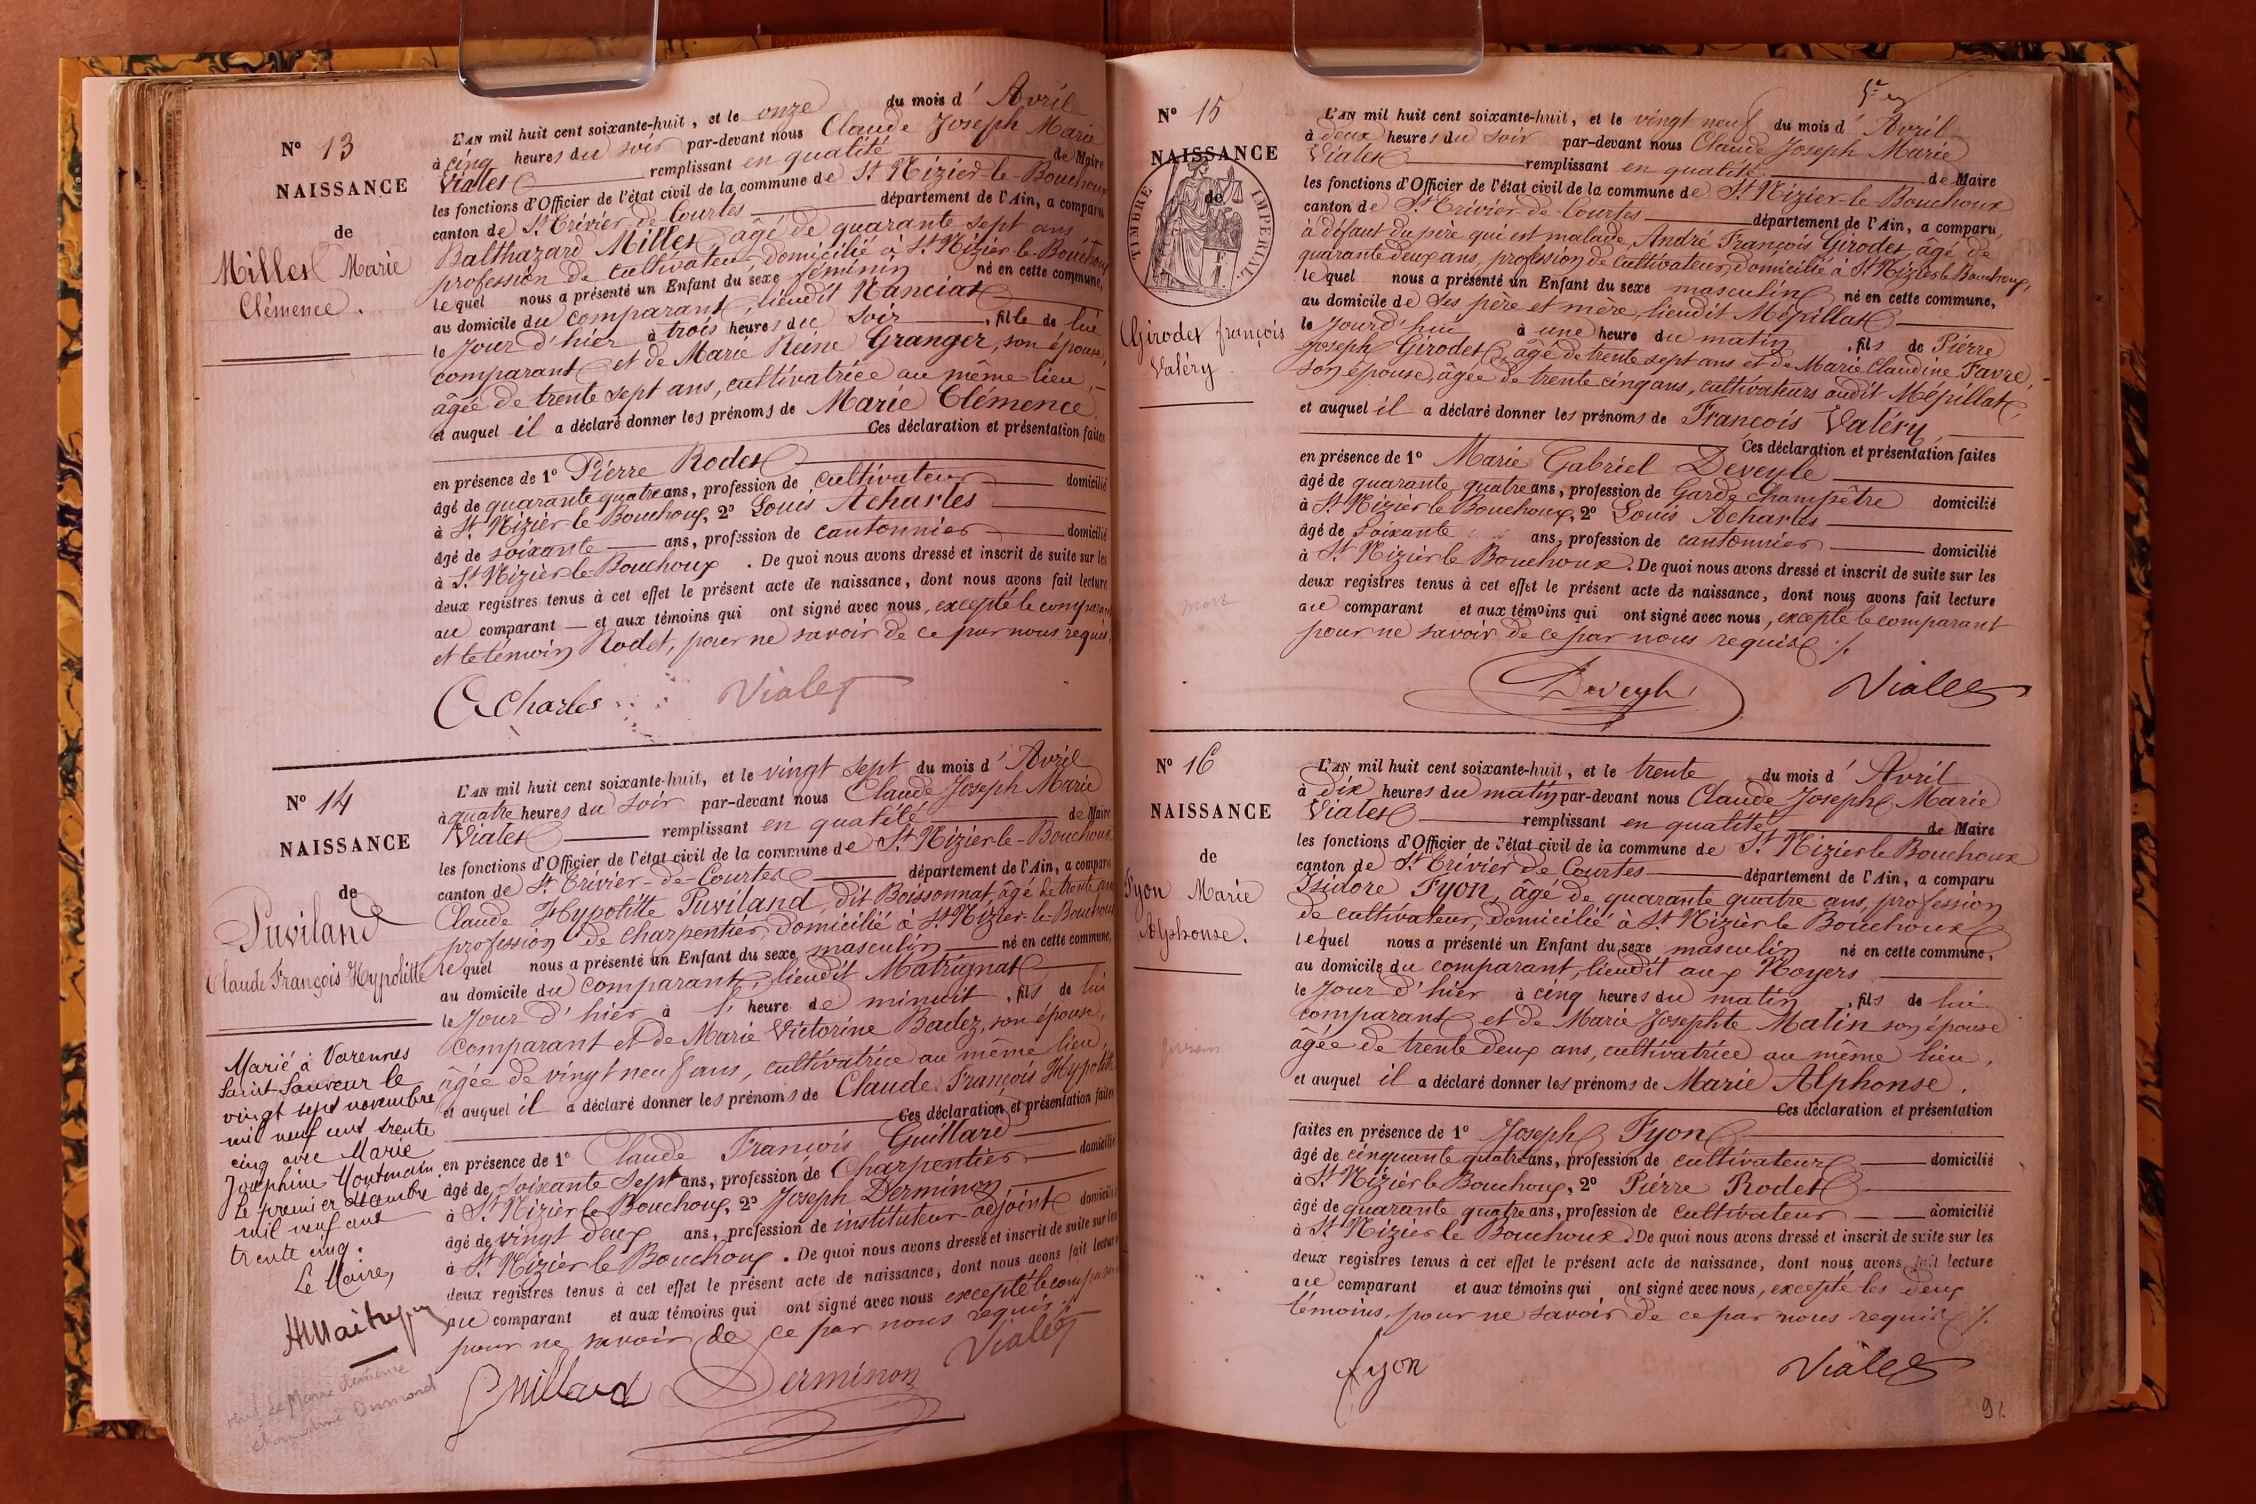 N° 13
NAISSANCE
de
Millet Marie
Clémence.
L'AN mil huit cent soixante-huit, et le onze du mois d'Avril
à cinq heures du soir par-devant nous Claude Joseph Marie
Vialet remplissant en qualité de Maire
les fonctions d'Officier de l'état civil de la commune de St Nizier-le-Bouchoux
canton de St Trivier-de-Courtes département de l'Ain, a comparu
Balthazard Millet, âgé de quarante sept ans
profession de cultivateur, domicilié à St Nizier-le-Bouchoux
lequel nous a présenté un Enfant du sexe féminin né en cette commune,
au domicile du comparant, lieudit Nanciat
le jour d'hier à trois heures du soir, fille de lui
comparant et de Marie Reine Granger, son épouse,
âgée de trente sept ans, cultivatrice au même lieu,
et auquel il a déclaré donner les prénoms de Marie Clémence
Ces déclaration et présentation faites
en présence de 1° Pierre Rodet
âgé de quarante quatre ans, profession de cultivateur domicilié
à St Nizier-le-Bouchoux, 2° Louis Acharles
âgé de soixante ans, profession de cantonnier domicilié
à St Nizier-le-Bouchoux. De quoi nous avons dressé et inscrit de suite sur les
deux registres tenus à cet effet le présent acte de naissance, dont nous avons fait lecture
au comparant et aux témoins qui ont signé avec nous, excepté le comparant
et le témoin Rodet, pour ne savoir de ce par nous requis
Acharles Vialet
N° 14
NAISSANCE
de
Puviland
Claude François Hypolitte
Marié à Varennes
Saint Sauveur le
vingt sept novembre
mil neuf cent trente
cinq avec Marie
Joséphine Montmain.
Le premier décembre
mil neuf cent
trente cinq.
Le Maire,
L'AN mil huit cent soixante-huit, et le vingt sept du mois d'Avril
à quatre heures du soir par-devant nous Claude Joseph Marie
Vialet remplissant en qualité de Maire
les fonctions d'Officier de l'état civil de la commune de St Nizier-le-Bouchoux
canton de St Trivier-de-Courtes département de l'Ain, a comparu
Claude Hypolitte Puviland, dit Boissonnat, âgé de trente ans
profession de charpentier, domicilié à St Nizier-le-Bouchoux
lequel nous a présenté un Enfant du sexe masculin né en cette commune,
au domicile du comparant, lieudit Matrignat
le jour d'hier à l' heure de minuit, fils de lui
comparant et de Marie Victorine Badez, son épouse,
âgée de vingt neuf ans, cultivatrice au même lieu,
et auquel il a déclaré donner les prénoms de Claude François Hypolitte
Ces déclaration et présentation faites
en présence de 1° Claude François Guillard
âgé de soixante sept ans, profession de Charpentier domicilié
à St Nizier le Bouchoux, 2° Joseph Derminon
âgé de vingt deux ans, profession de instituteur-adjoint domicilié
à St Nizier le Bouchoux. De quoi nous avons dressé et inscrit de suite sur les
deux registres tenus à cet effet le présent acte de naissance, dont nous avons fait lecture
au comparant et aux témoins qui ont signé avec nous excepté le comparant
pour ne savoir de ce par nous requis ./.
Guillard Derminon Vialet
N° 15
NAISSANCE
de
TIMBRE IMPÉRIAL
Girodet françois
Valéry
L'AN mil huit cent soixante-huit, et le vingt neuf du mois d'Avril
à deux heures du soir par-devant nous Claude Joseph Marie
Vialet remplissant en qualité de Maire
les fonctions d'Officier de l'état civil de la commune de St Nizier-le Bouchoux
canton de St Trivier-de-Courtes département de l'Ain, a comparu,
à défaut du père qui est malade, André François Girodet, âgé de
quarante deux ans, profession de cultivateur, domicilié à St Nizier le Bouchoux,
lequel nous a présenté un Enfant du sexe masculin né en cette commune,
au domicile de ses père et mère, lieudit Mépillat
le jourd'hui à une heure du matin, fils de Pierre
Joseph Girodet, âgé de trente sept ans et de Marie Claudine Favre,
son épouse, âgée de trente cinq ans, cultivateurs audit Mépillat,
et auquel il a déclaré donner les prénoms de François Valéry
Ces déclaration et présentation faites
en présence de 1° Marie Gabriel Deveyle
âgé de quarante quatre ans, profession de Garde champêtre domicilié
à St Nizier le Bouchoux, 2° Louis Acharles
âgé de soixante ans, profession de cantonnier domicilié
à St Nizier le Bouchoux. De quoi nous avons dressé et inscrit de suite sur les
deux registres tenus à cet effet le présent acte de naissance, dont nous avons fait lecture
au comparant et aux témoins qui ont signé avec nous, excepté le comparant
pour ne savoir de ce par nous requis ./.
Deveyle Vialet
N° 16
NAISSANCE
de
Fyon Marie
Alphonse.
L'AN mil huit cent soixante-huit, et le trente du mois d'Avril
à dix heures du matin par-devant nous Claude Joseph Marie
Vialet remplissant en qualité de Maire
les fonctions d'Officier de l'état civil de la commune de St Nizier le Bouchoux
canton de St Trivier de Courtes département de l'Ain, a comparu
Isidore Fyon, âgé de quarante quatre ans, profession
de cultivateur, domicilié à St Nizier le Bouchoux
lequel nous a présenté un Enfant du sexe masculin né en cette commune,
au domicile du comparant, lieudit aux Noyers
le jour d'hier à cinq heures du matin, fils de lui
comparant et de Marie Josephte Matin son épouse
âgée de trente deux ans, cultivatrice au même lieu,
et auquel il a déclaré donner les prénoms de Marie Alphonse.
Ces déclaration et présentation
faites en présence de 1° Joseph Fyon
âgé de cinquante quatre ans, profession de cultivateur domicilié
à St Nizier le Bouchoux, 2° Pierre Rodet
âgé de quarante quatre ans, profession de cultivateur domicilié
à St Nizier le Bouchoux. De quoi nous avons dressé et inscrit de suite sur les
deux registres tenus à cet effet le présent acte de naissance, dont nous avons fait lecture
au comparant et aux témoins qui ont signé avec nous, excepté les deux
témoins, pour ne savoir de ce par nous requis ./.
fyon Vialet
91